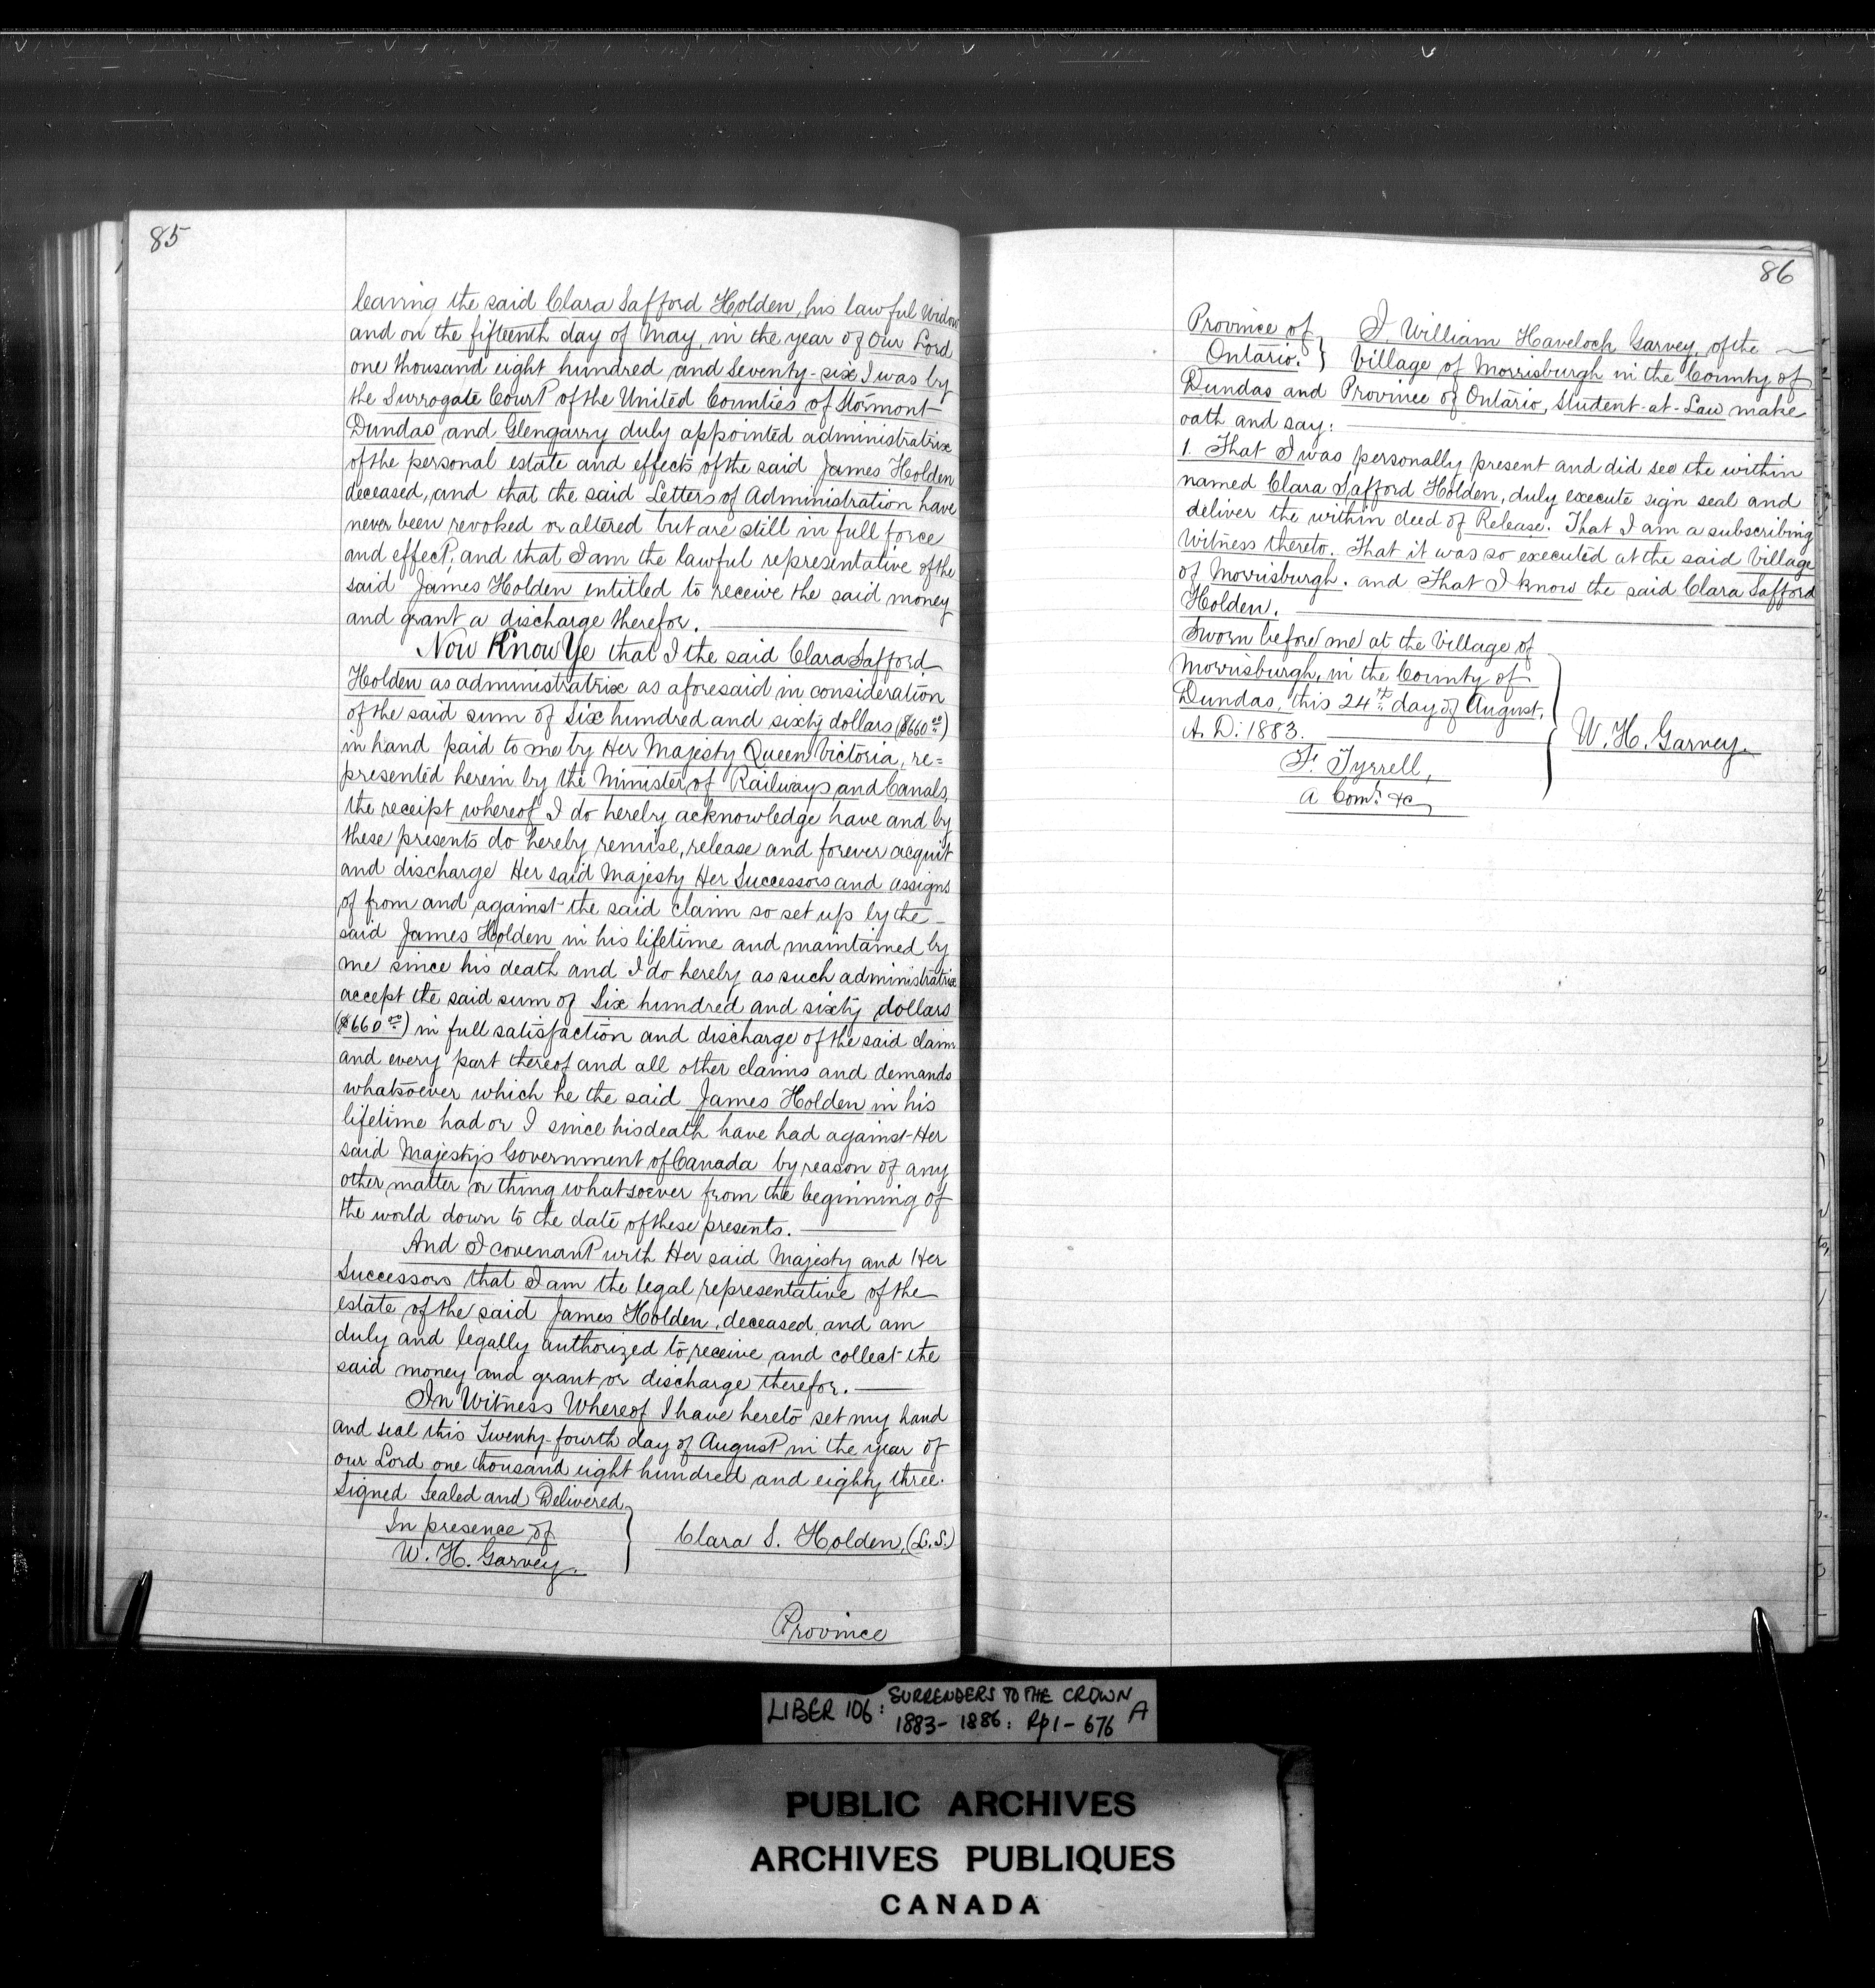 85
leaving the said Clara Safford Holden, his lawful Widow
and on the fifteenth day of May, in the year of Our Lord
one thousand eight hundred and Seventy-six I was by
the Surrogate Court of the United Counties of Stormont
Dundas and Glengarry duly appointed administratrix
of the personal estate and effects of the said James Holden
deceased, and that the said Letters of Administration have
never been revoked or altered but are still in full force
and effect, and that I am the lawful representative of the
said James Holden entitled to receive the said money
and grant a discharge therefor.
Now Know Ye that I the said Clara Safford
Holden as administratrix as aforesaid in consideration
of the said sum of Six hundred and sixty dollars ($660.00)
in hand paid to me by Her Majesty Queen Victoria, re=
presented herein by the Minister of Railways and Canals,
the receipt whereof I do hereby acknowledge have and by
these presents do hereby remise, release and forever acquit
and discharge Her said Majesty Her Successors and assigns
of from and against the said claim so set up by the
said James Holden in his lifetime and maintained by
me since his death and I do hereby as such administratrix
accept the said sum of Six hundred and sixty dollars
($660.00) in full satisfaction and discharge of the said claim
and every part thereof and all other claims and demands
whatsoever which he the said James Holden in his
lifetime had or I since his death have had against Her
said Majesty's Government of Canada by reason of any
other matter or thing whatsoever from the beginning of
the world down to the date of these presents.
And I covenant with Her said Majesty and Her
Successors that I am the legal representative of the
estate of the said James Holden, deceased, and am
duly and legally authorized to receive and collect the
said money and grant or discharge therefor.
In Witness Whereof I have hereto set my hand
and seal this Twenty-fourth day of August in the year of
our Lord one thousand eight hundred and eighty three.
Signed Sealed and Delivered
In presence of
W. H. Garvey.
Clara S. Holden, (L.S.)
Province
86
Province of
Ontario.
I, William Haveloch Garvey, of the
Village of Morrisburgh in the County of
Dundas and Province of Ontario, Student-at-Law make
oath and say:
1. That I was personally present and did see the within
named Clara Safford Holden, duly execute sign seal and
deliver the within deed of Release. That I am a subscribing
Witness thereto. That it was so executed at the said Village
of Morrisburgh. and That I know the said Clara Safford
Holden.
Sworn before me at the Village of
Morrisburgh, in the County of
Dundas, this 24th day of August,
A. D: 1883.
F. Tyrrell,
A Comr. &c
W. H. Garvey.
LIBER 106: SURRENDERS TO THE CROWN A
1883-1886: Pp 1-676
PUBLIC ARCHIVES
ARCHIVES PUBLIQUES
CANADA